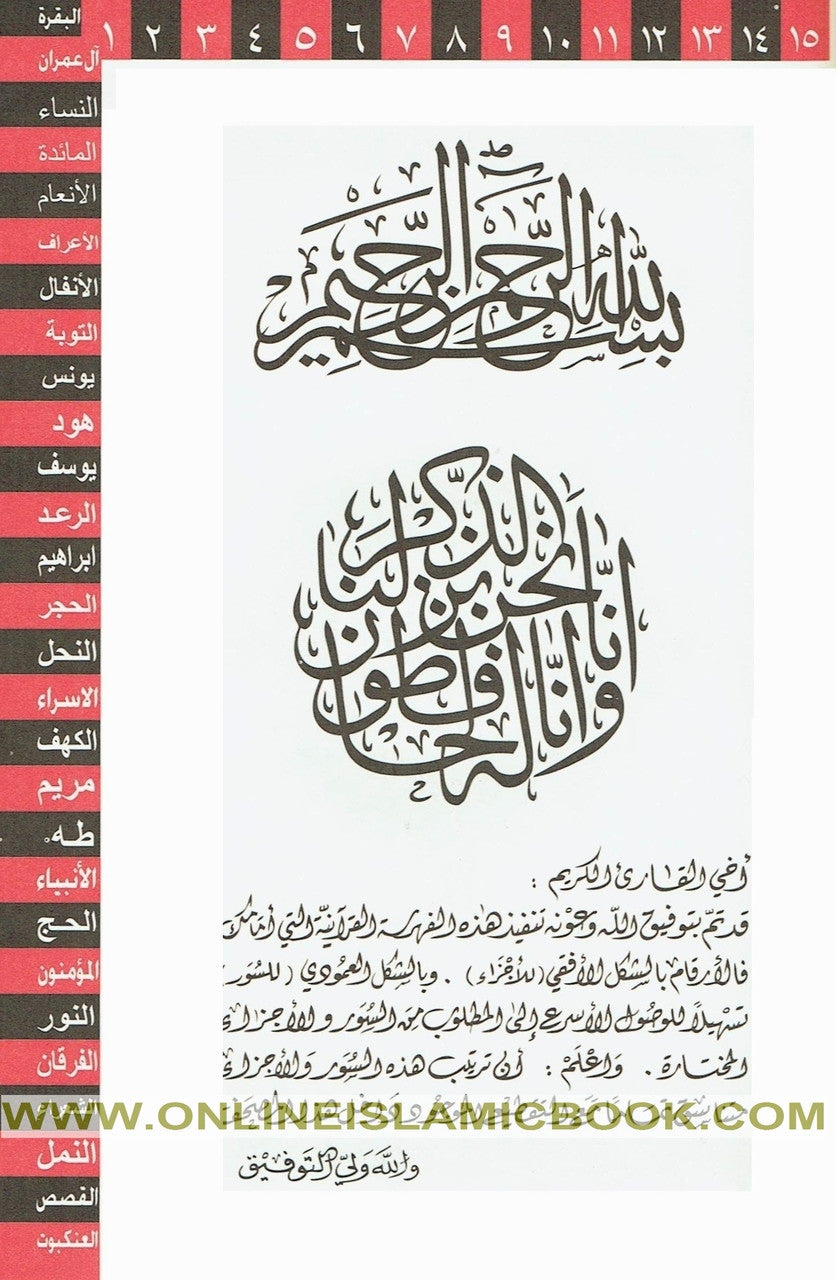 ١ ٢ ٣ ٤ ٥ ٦ ٧ ٨ ٩ ١٠ ١١ ١٢ ١٣ ١٤ ١٥
البقرة
آل عمران
النساء
المائدة
الأنعام
الأعراف
الأنفال
التوبة
يونس
هود
يوسف
الرعد
ابراهيم
الحجر
النحل
الاسراء
الكهف
مريم
طه
الأنبياء
الحج
المؤمنون
النور
الفرقان
الشعراء
النمل
القصص
العنكبوت
بسم الله الرحمن الرحيم
انا نحن نزلنا الذكر وانا له لحافظون
أخي القارئ الكريم :
قد تمّ بتوفيق اللّه وعونه تنفيذ هذه الفهرسة القرآنيّة التي أمامك
فالأرقام بالشكل الأفقي (للأجزاء) . وبالشكل العمودي (للسُّوَر)
تسهيلاً للوصُول الأسرع إلى المطلوب من السُّوَر والأجزاء
المختارة . وَاعْلَم : أن ترتيب هذه السُّوَر وَالأجزاء
مع التقطيع الموجود داخل هذا المصحف
واللّه وليّ التوفيق
WWW.ONLINEISLAMICBOOK.COM